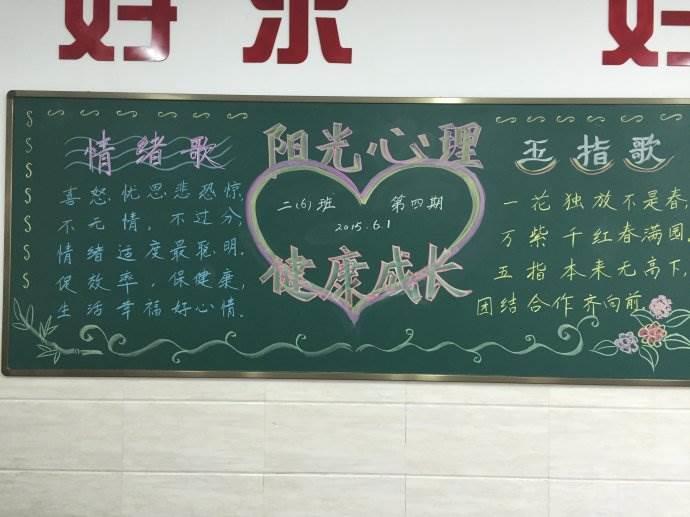 情绪歌
喜怒忧思悲恐惊,
不无情,不过分,
情绪适度最聪明.
促效率,保健康,
生活幸福好心情.
阳光心理
二(6)班 第四期
2015.6.1
健康成长
五指歌
一花独放不是春,
万紫千红春满园.
五指本来无高下,
团结合作齐向前